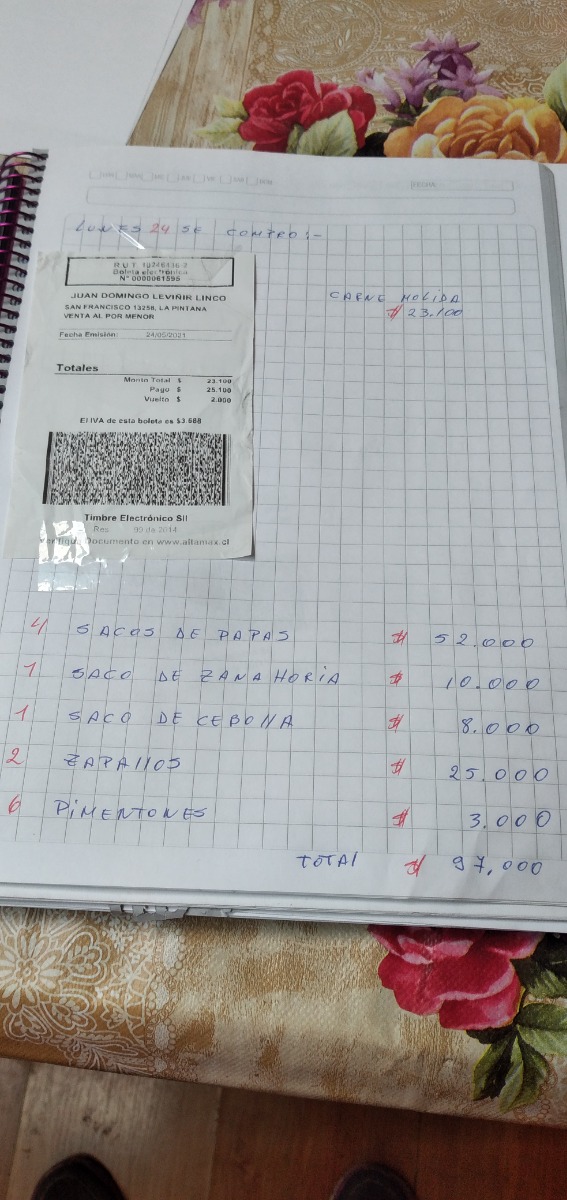 FECHA
LUNES 24 SE COMPRO:-
R.U.T.
Boleta electrónica
N° 0000061595
JUAN DOMINGO LEVIÑIR LINCO
SAN FRANCISCO 13258, LA PINTANA
VENTA AL POR MENOR
Fecha Emisión: 24/05/2021
Totales
Monto Total $ 23.100
Pago $ 25.100
Vuelto $ 2.000
El IVA de esta boleta es $3.688
Timbre Electrónico SII
Res. 00 de 2014
Verifique Documento en www.altamax.cl
CARNE MOLIDA
$ 23.100
4 SACOS DE PAPAS $ 52.000
1 SACO DE ZANAHORIA $ 10.000
1 SACO DE CEBOLLA $ 8.000
2 ZAPALLOS $ 25.000
6 PIMENTONES $ 3.000
TOTAL $ 97.000